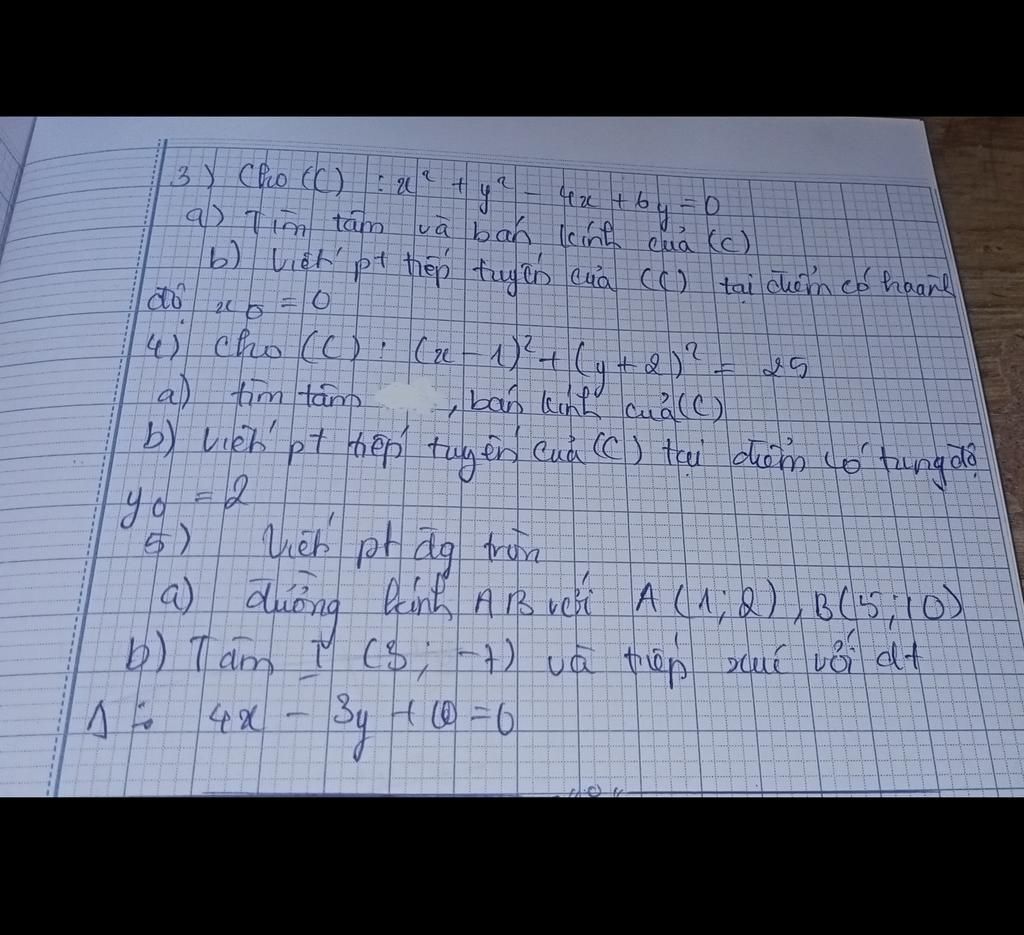 3) Cho (C) : x² + y² - 4x + 6y = 0
a) Tìm tâm và bán kính của (C)
b) Viết pt tiếp tuyến của (C) tại điểm có hoành
độ x₀ = 0
4) Cho (C) : (x - 1)² + (y + 2)² = 25
a) tìm tâm , bán kính của (C)
b) Viết pt tiếp tuyến của (C) tại điểm có tung độ
y₀ = 2
5) Viết pt đg tròn
a) đường kính AB với A (1; 2), B(5; 10)
b) Tâm I (3; -7) và tiếp xúc với đt
Δ : 4x - 3y + 10 = 0